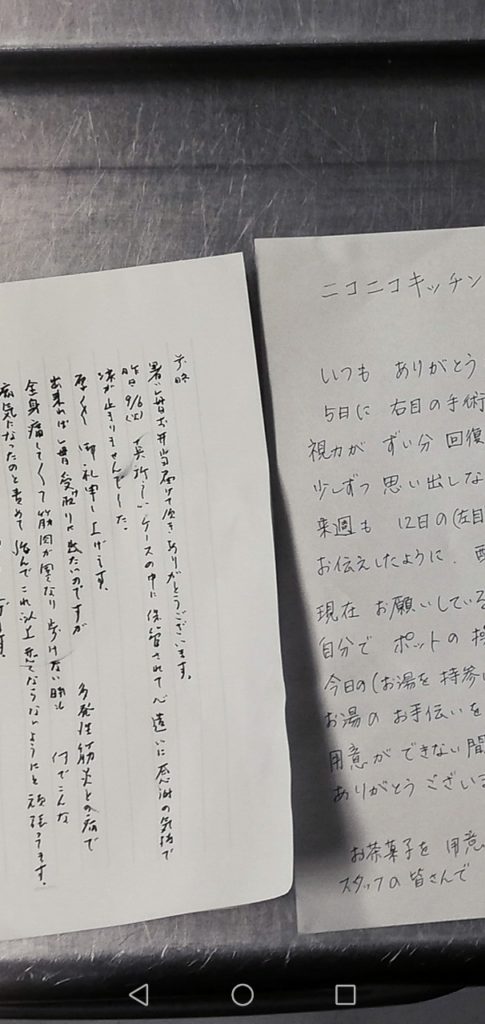 前略
暑い毎日お弁当届けて頂きありがとうございます。
昨日9/6(火) 真新しいケースの中に保管されて心遣いに感謝の気持で
涙が止りませんでした。
厚く 御礼申し上げます。
出来れば毎日受取りに出たいのですが 多発性筋炎との病で
全身痛くて筋肉が悪くなり歩けない時も 何でこんな
病気になったのと責めて悩んでこれ以上悪くならないようにと頑張ってます。
ニコニコキッチン
いつも ありがとう
5日に 右目の手術
視力が ずい分 回復
少しずつ 思い出しな
来週も 12日の(左目
お伝えしたように、配
現在 お願いしている
自分で ポットの 操
今日の(お湯を 持参
お湯の お手伝いを
用意が できない間
ありがとう ございま
お茶菓子を 用意
スタッフの 皆さんで